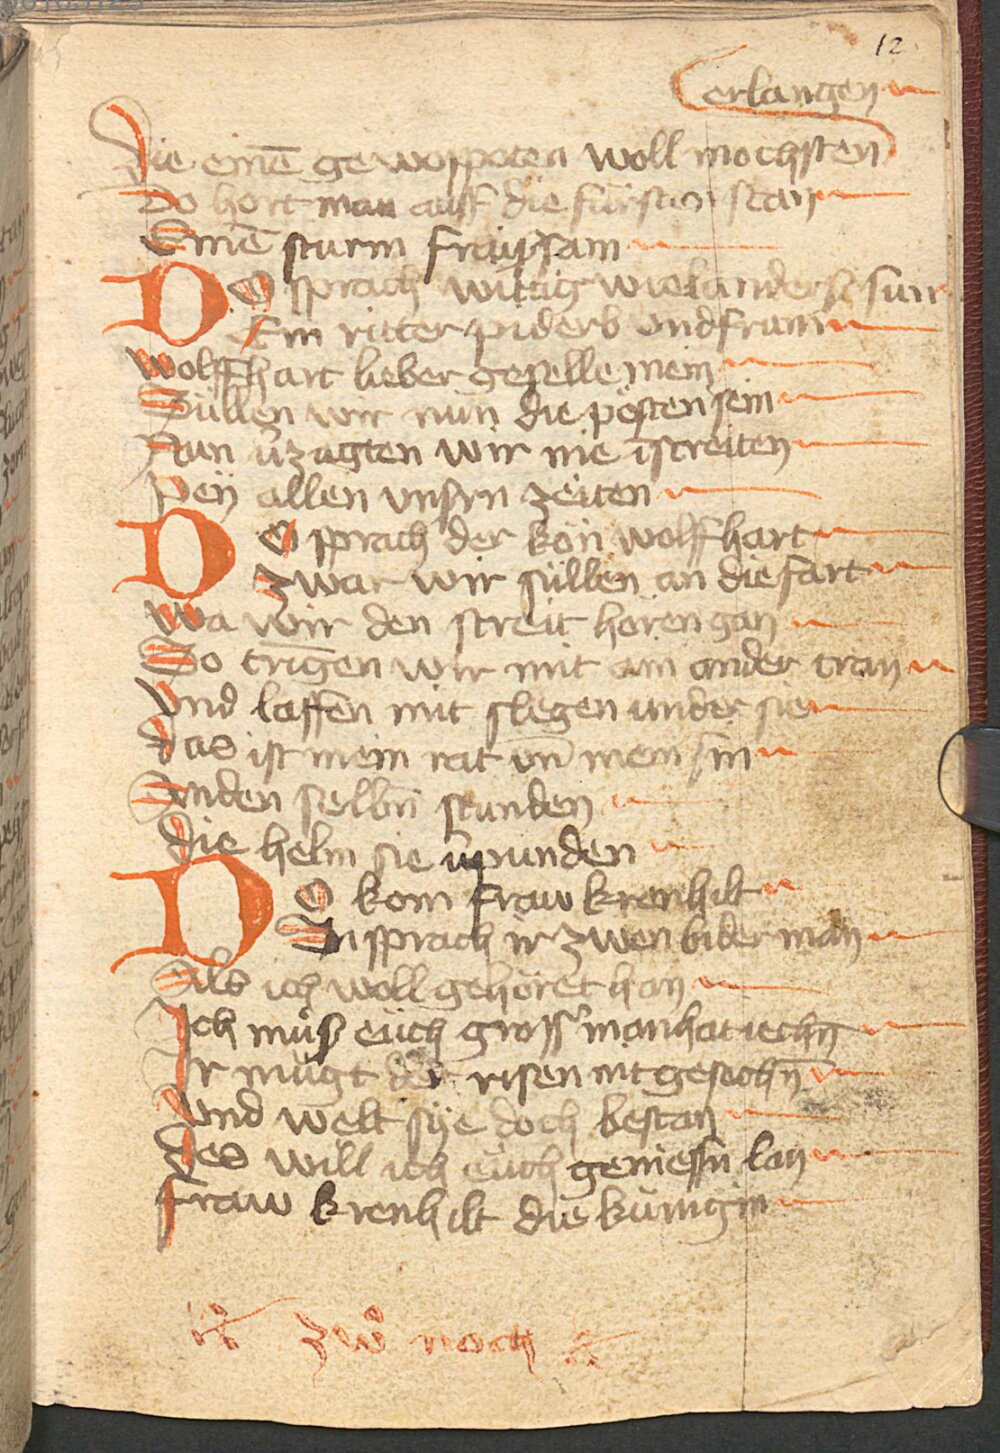 12
erlangen
Die einē gewoppoten woll mochsten
Do hort man auff die fursten stan
Einē sturm fraysam
DO sprach wittig wielanders sun
Ein ritter piderb vnd fram
wolffhart lieber geselle mein
Süllen wir nun die pösten sein
Nun v̄zagten wir nie ī streiten
Peÿ allen vnsrn zeiten
DO sprach der kön wolffhart
zwar wir süllen an die fart
wa wir den streit horen gan
So tringen wir mit am ander tran
vnd lassen mit slegen under sie
das ist mein rat vn̄ mein sin
An den selbn̄ stunden
die helm sie v̄punden
DO kom fraw krenhilt
In sprach ir zwen bider man
Als ich woll gehöret han
Ich müs euch gross manhat iechn̄
Ir mügt der risen nit gesechn̄
vnd welt sÿe doch bestan
Des will ich euch geniessn lan
fraw krenhilt die künigin
zwo noch